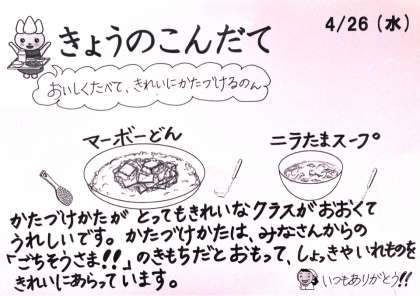 4/26(水)
きょうのこんだて
おいしくたべて、きれいにかたづけるのん
マーボーどん
ニラたまスープ
かたづけかたが とってもきれいなクラスがおおくて
うれしいです。かたづけかたは、みなさんからの
「ごちそうさま!!」のきもちだとおもって、しょっきやいれものを
きれいにあらっています。
いつもありがとう!!